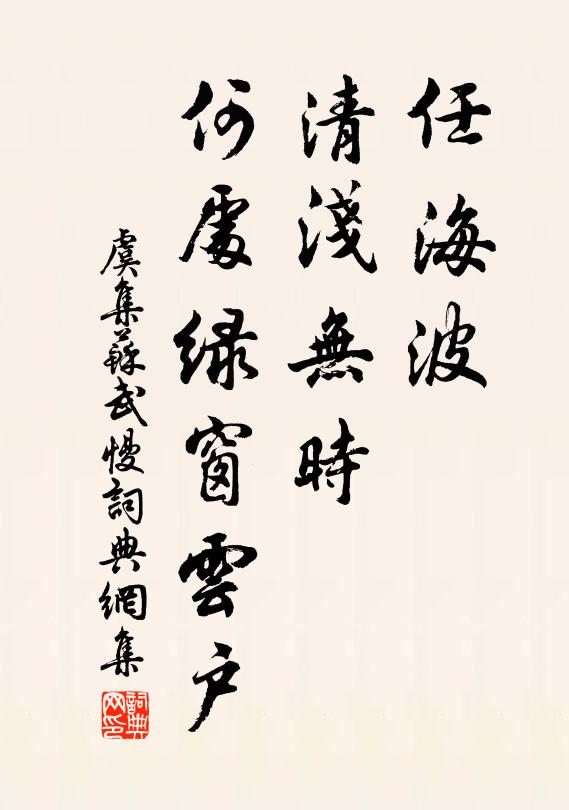 任海波
清淺無時
何處綠窗雲戶
虞集蘇武慢詞典網集
詞典网印